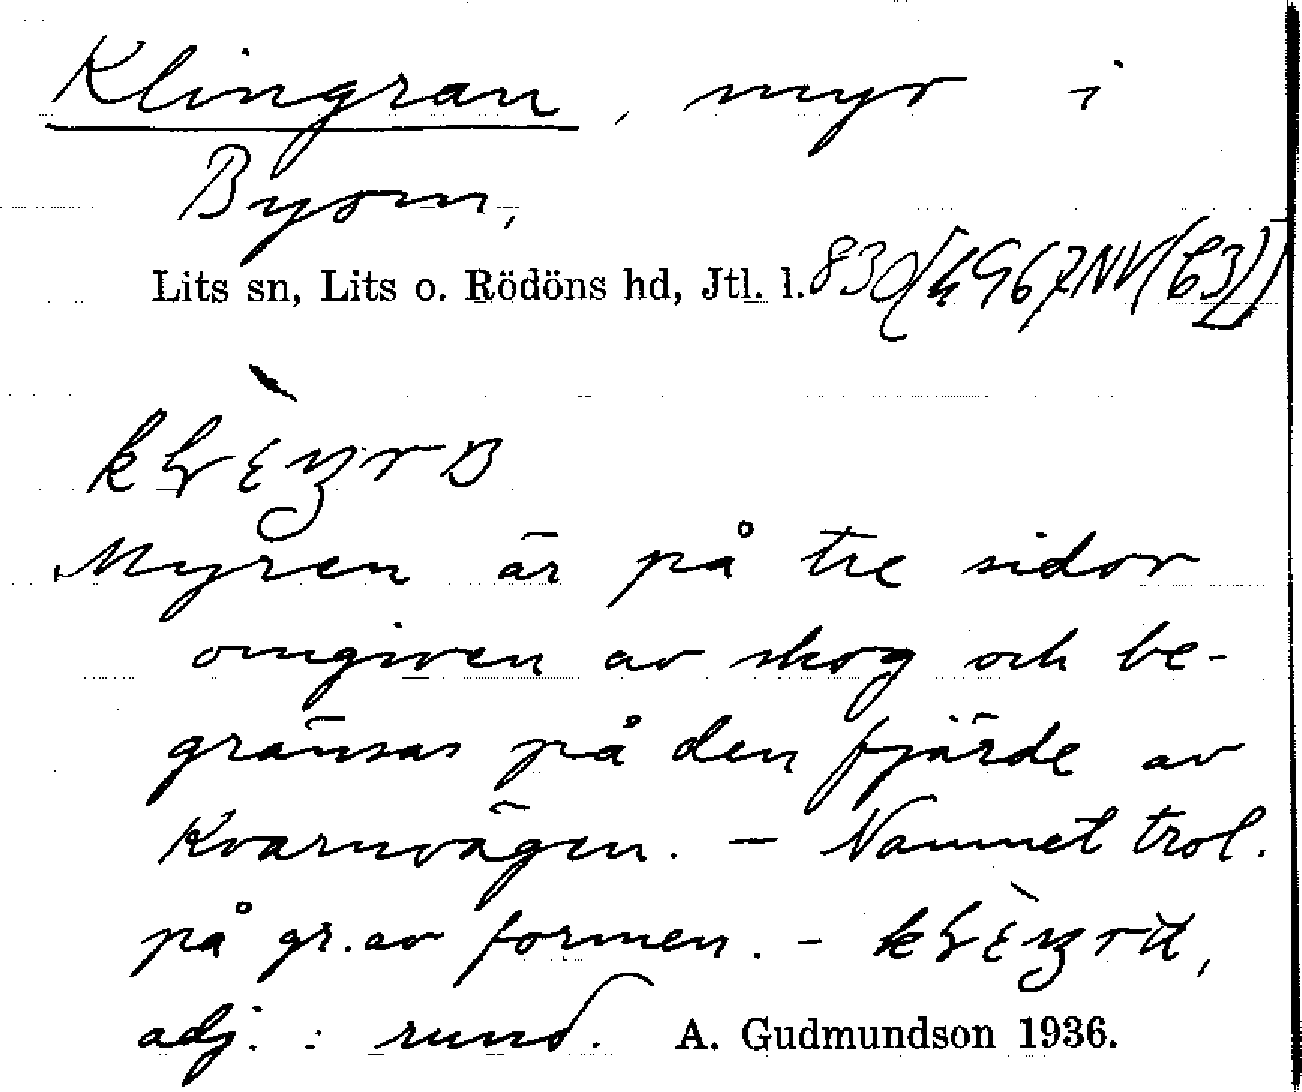 Klingran, myr i
Byom,
Lits sn, Lits o. Rödöns hd, Jtl. l. 830/4967NV(63)
Myren är på tre sidor
omgiven av skog och be-
gränsas på den fjärde av
Kvarnvägen. - Namnet trol.
på gr. av formen. -
adj. : rund. A. Gudmundson 1936.